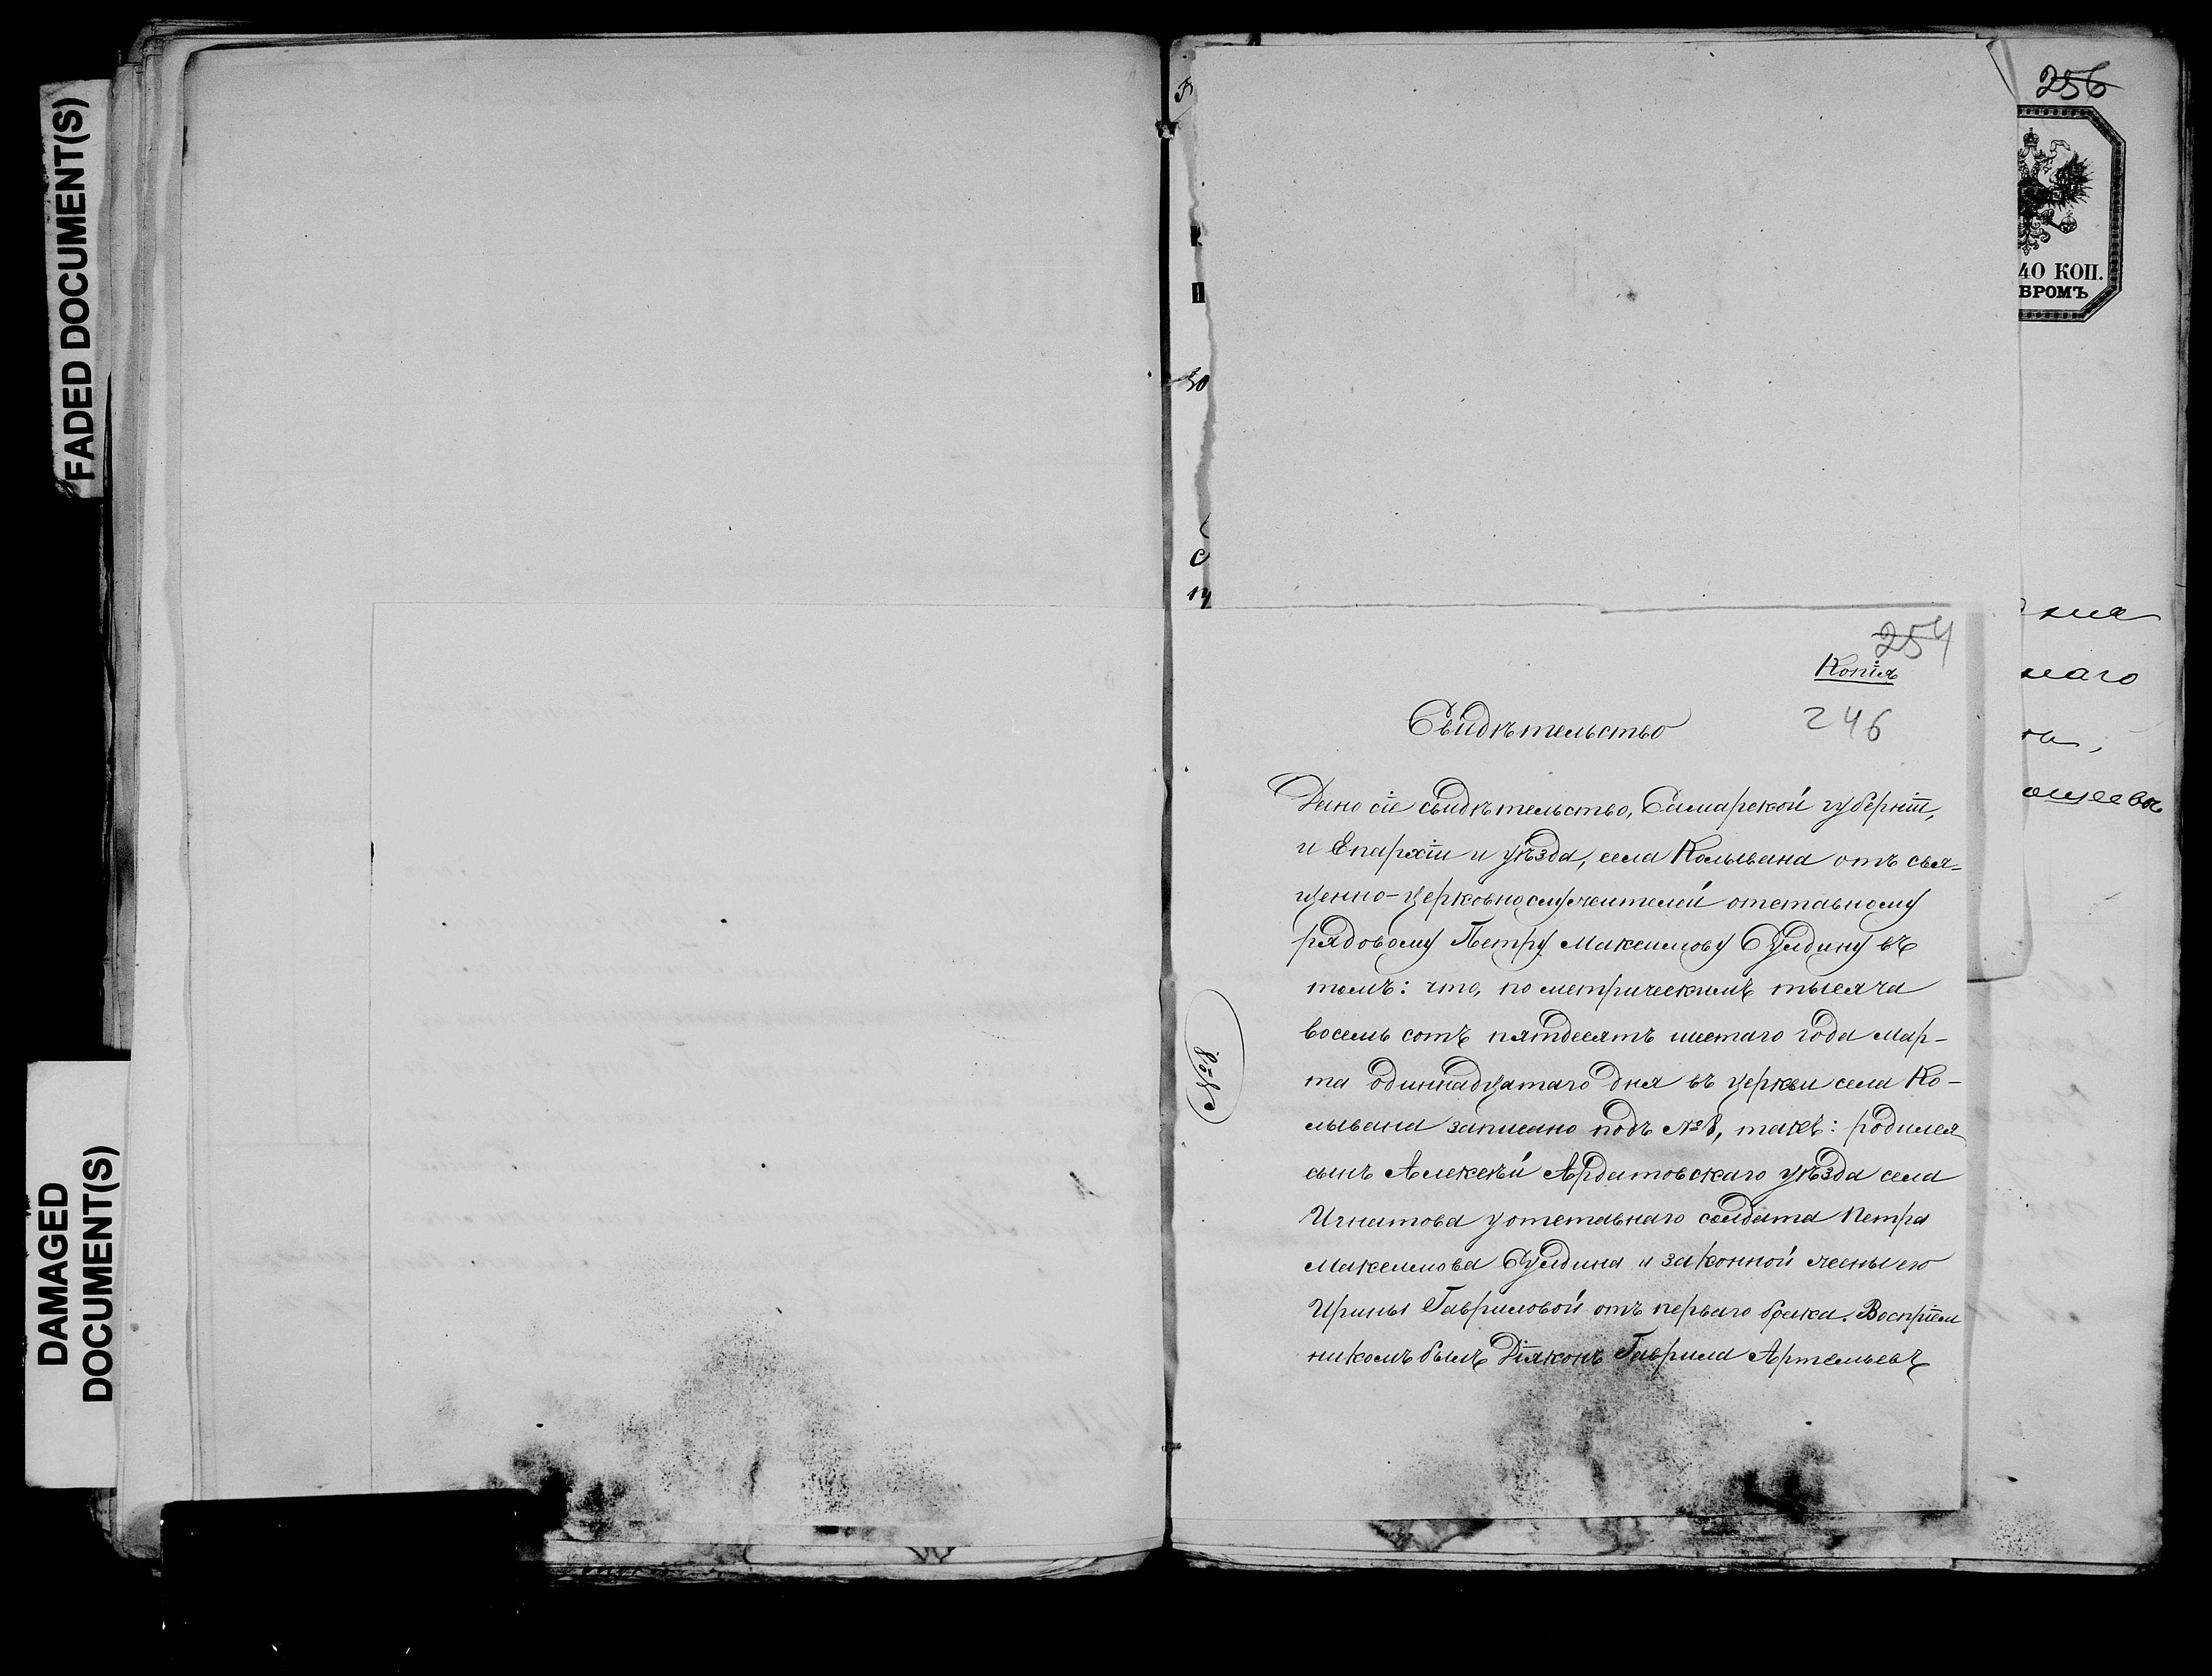 FADED DOCUMENT(S)
DAMAGED
DOCUMENT(S)
256
40 КОП.
ВРОМЪ
наго
254
Копія
246
Свидѣтельство
Дано сіе свидѣтельство, Самарской губерніи,
и Епархіи и уѣзда, села Колывана отъ свя-
щенно-церковнослужителей отставному
рядовому Петру Максимову Сулдину въ
томъ: что, по метрическимъ тысяча
восемь сотъ пятдесятъ шестаго года Мар-
та одиннадцатаго дня въ церкви села Ко-
лывана записано подъ №8, такъ: родился
сынъ Алексѣй Ардатовскаго уѣзда села
Игнатова у отставнаго солдата Петра
Максимова Сулдина и законной жены его
Ирины Гавриловой отъ перваго брака. Воспріем
никомъ былъ Діяконъ Гаврила Артемьевъ
№8.